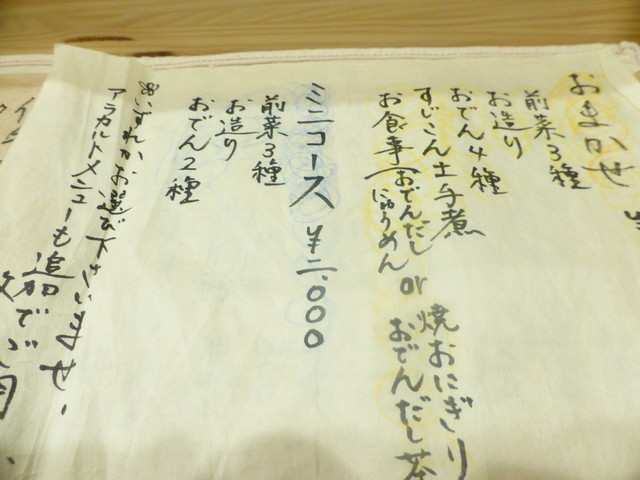 おまかせ
前菜3種
お造り
おでん4種
すじこん土手煮
お食事(おでんだしにゅうめん or 焼おにぎりおでんだし茶
ミニコース ¥二.000
前菜3種
お造り
おでん2種
※いずれかお選び下さいませ.
アラカルトメニューも追加でご